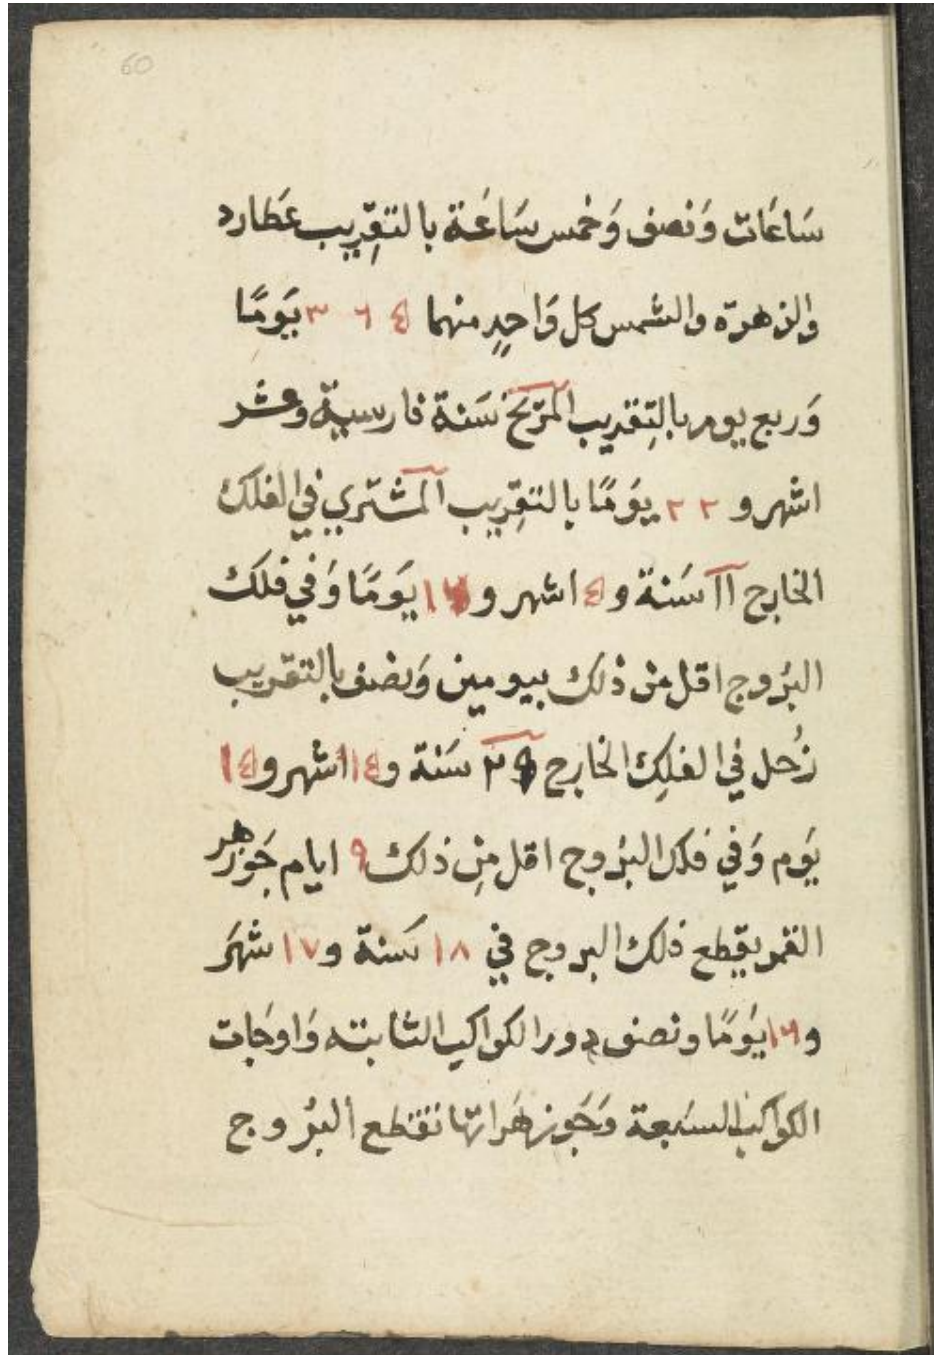 60
سَاعَات وَنصف وَخمس سَاعَة بالتقِريب عَطارد
والزهرة والشمس كل وَاحِدٍ منهما ٣ ٦ ٤ يَومًا
وَربع يوم بالتِقريب المرّيخ سَنة فارسية وعشر
اشهر و ٢٢ يَومًا بالتقِريب المشتري في الفلك
الخارج ١١ سَنة و٤ اشهر و يَومًا وَفي فلك
البرُوج اقل مِن ذلك بيومين وَنصف بالتقريب
زُحل في الفلِك الخارج ٢٩ سَنة و اشهر و١٤
يَوم وَفي فلك البرُوج اقل مِن ذلك ٩ ايام جَوزهر
القمر يقطع فلك البروج في ١٨ سَنة و١٧ شهرَ
و يَومًا ونصف دور الكواكب الثابته وَاوجَات
الكواكب السَبعة وَجَوزهَراتها تقطع البرُوج